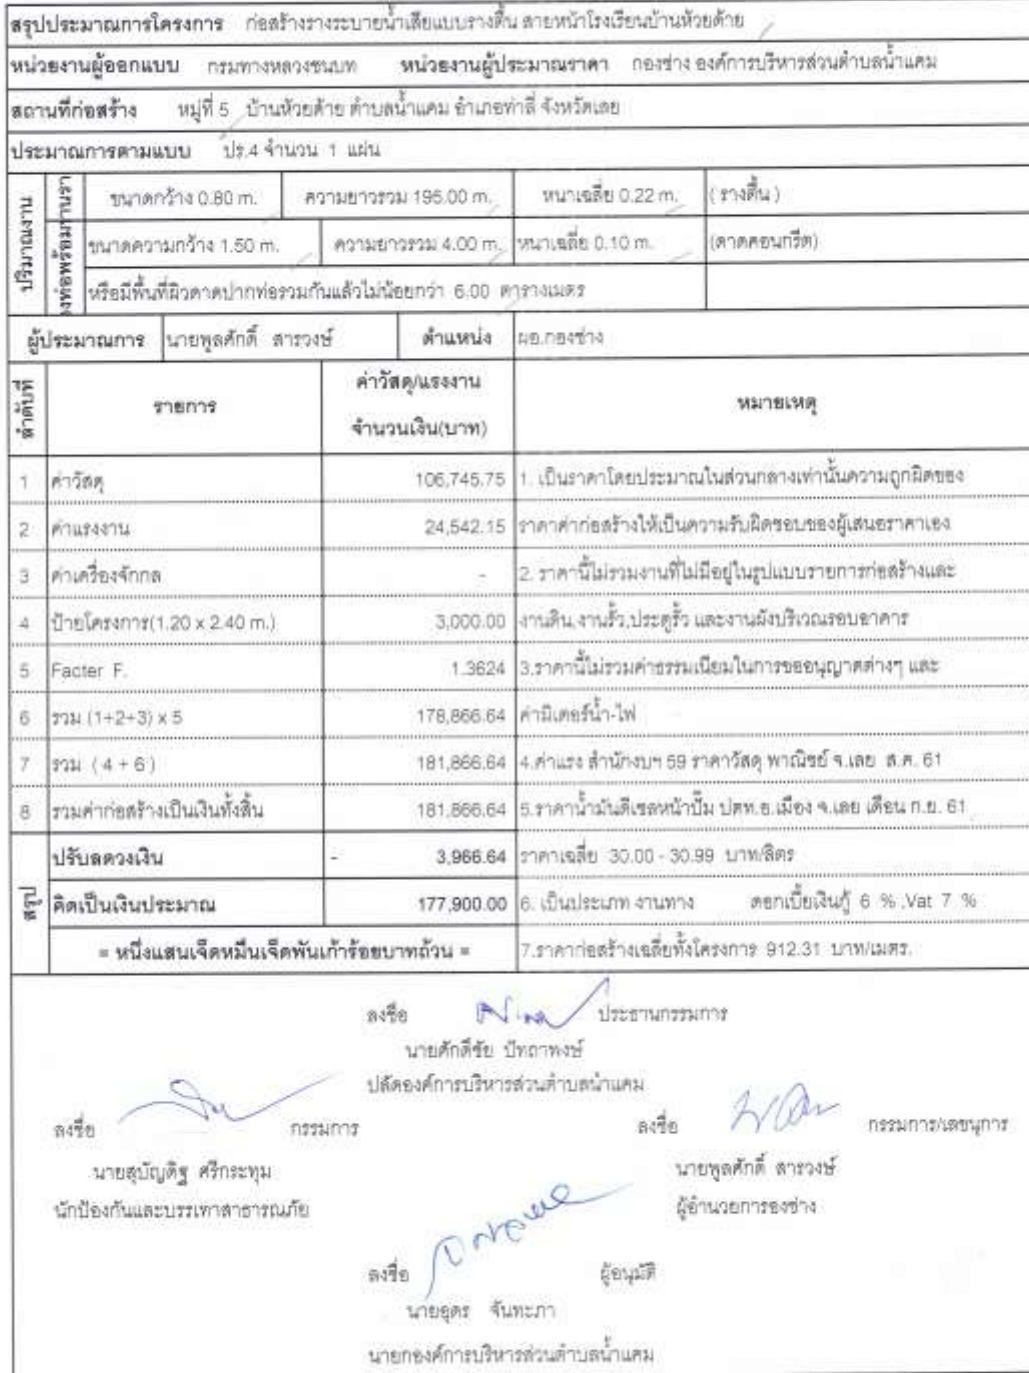 สรุปประมาณการโครงการ ก่อสร้างรางระบายน้ำเสียแบบรางตื้น สายหน้าโรงเรียนบ้านห้วยด้าย
หน่วยงานผู้ออกแบบ กรมทางหลวงชนบท หน่วยงานผู้ประมาณราคา กองช่าง องค์การบริหารส่วนตำบลน้ำแคม
สถานที่ก่อสร้าง หมู่ที่ 5 บ้านห้วยด้าย ตำบลน้ำแคม อำเภอท่าลี่ จังหวัดเลย
ประมาณการตามแบบ ปร.4 จำนวน 1 แผ่น
ปริมาณงาน
ขนาดกว้าง 0.80 m. ความยาวรวม 195.00 m. หนาเฉลี่ย 0.22 m. (รางตื้น)
ขนาดความกว้าง 1.50 m. ความยาวรวม 4.00 m. หนาเฉลี่ย 0.10 m. (ดาดคอนกรีต)
หรือมีพื้นที่ผิวดาดปากท่อรวมกันแล้วไม่น้อยกว่า 6.00 ตารางเมตร
ผู้ประมาณการ นายพูลศักดิ์ สารวงษ์ ตำแหน่ง ผอ.กองช่าง
ลำดับที่ รายการ ค่าวัสดุ/แรงงาน จำนวนเงิน(บาท) หมายเหตุ
1 ค่าวัสดุ 106,745.75 1. เป็นราคาโดยประมาณในส่วนกลางเท่านั้นความถูกผิดของ
2 ค่าแรงงาน 24,542.15 ราคาค่าก่อสร้างให้เป็นความรับผิดชอบของผู้เสนอราคาเอง
3 ค่าเครื่องจักกล - 2. ราคานี้ไม่รวมงานที่ไม่มีอยู่ในรูปแบบรายการก่อสร้างและ
4 ป้ายโครงการ(1.20 x 2.40 m.) 3,000.00 งานดิน,งานรั้ว,ประตูรั้ว และงานผังบริเวณรอบอาคาร
5 Facter F. 1.3624 3.ราคานี้ไม่รวมค่าธรรมเนียมในการขออนุญาตต่างๆ และ
6 รวม (1+2+3) x 5 178,866.64 ค่ามิเตอร์น้ำ-ไฟ
7 รวม ( 4 + 6 ) 181,866.64 4.ค่าแรง สำนักงบฯ 59 ราคาวัสดุ พาณิชย์ จ.เลย ส.ค. 61
8 รวมค่าก่อสร้างเป็นเงินทั้งสิ้น 181,866.64 5.ราคาน้ำมันดีเซลหน้าปั๊ม ปตท.อ.เมือง จ.เลย เดือน ก.ย. 61
สรุป
ปรับลดวงเงิน - 3,966.64 ราคาเฉลี่ย 30.00 - 30.99 บาท/ลิตร
คิดเป็นเงินประมาณ 177,900.00 6. เป็นประเภท งานทาง ดอกเบี้ยเงินกู้ 6 % ,Vat 7 %
= หนึ่งแสนเจ็ดหมื่นเจ็ดพันเก้าร้อยบาทถ้วน = 7.ราคาก่อสร้างเฉลี่ยทั้งโครงการ 912.31 บาท/เมตร.
ลงชื่อ ประธานกรรมการ
นายศักดิ์ชัย ปัทถาพงษ์
ปลัดองค์การบริหารส่วนตำบลน้ำแคม
ลงชื่อ กรรมการ ลงชื่อ กรรมการ/เลขนุการ
นายสุบัญดิฐ ศรีกระทุม นายพูลศักดิ์ สารวงษ์
นักป้องกันและบรรเทาสาธารณภัย ผู้อำนวยการองช่าง
ลงชื่อ ผู้อนุมัติ
นายอุดร จันทะภา
นายกองค์การบริหารส่วนตำบลน้ำแคม